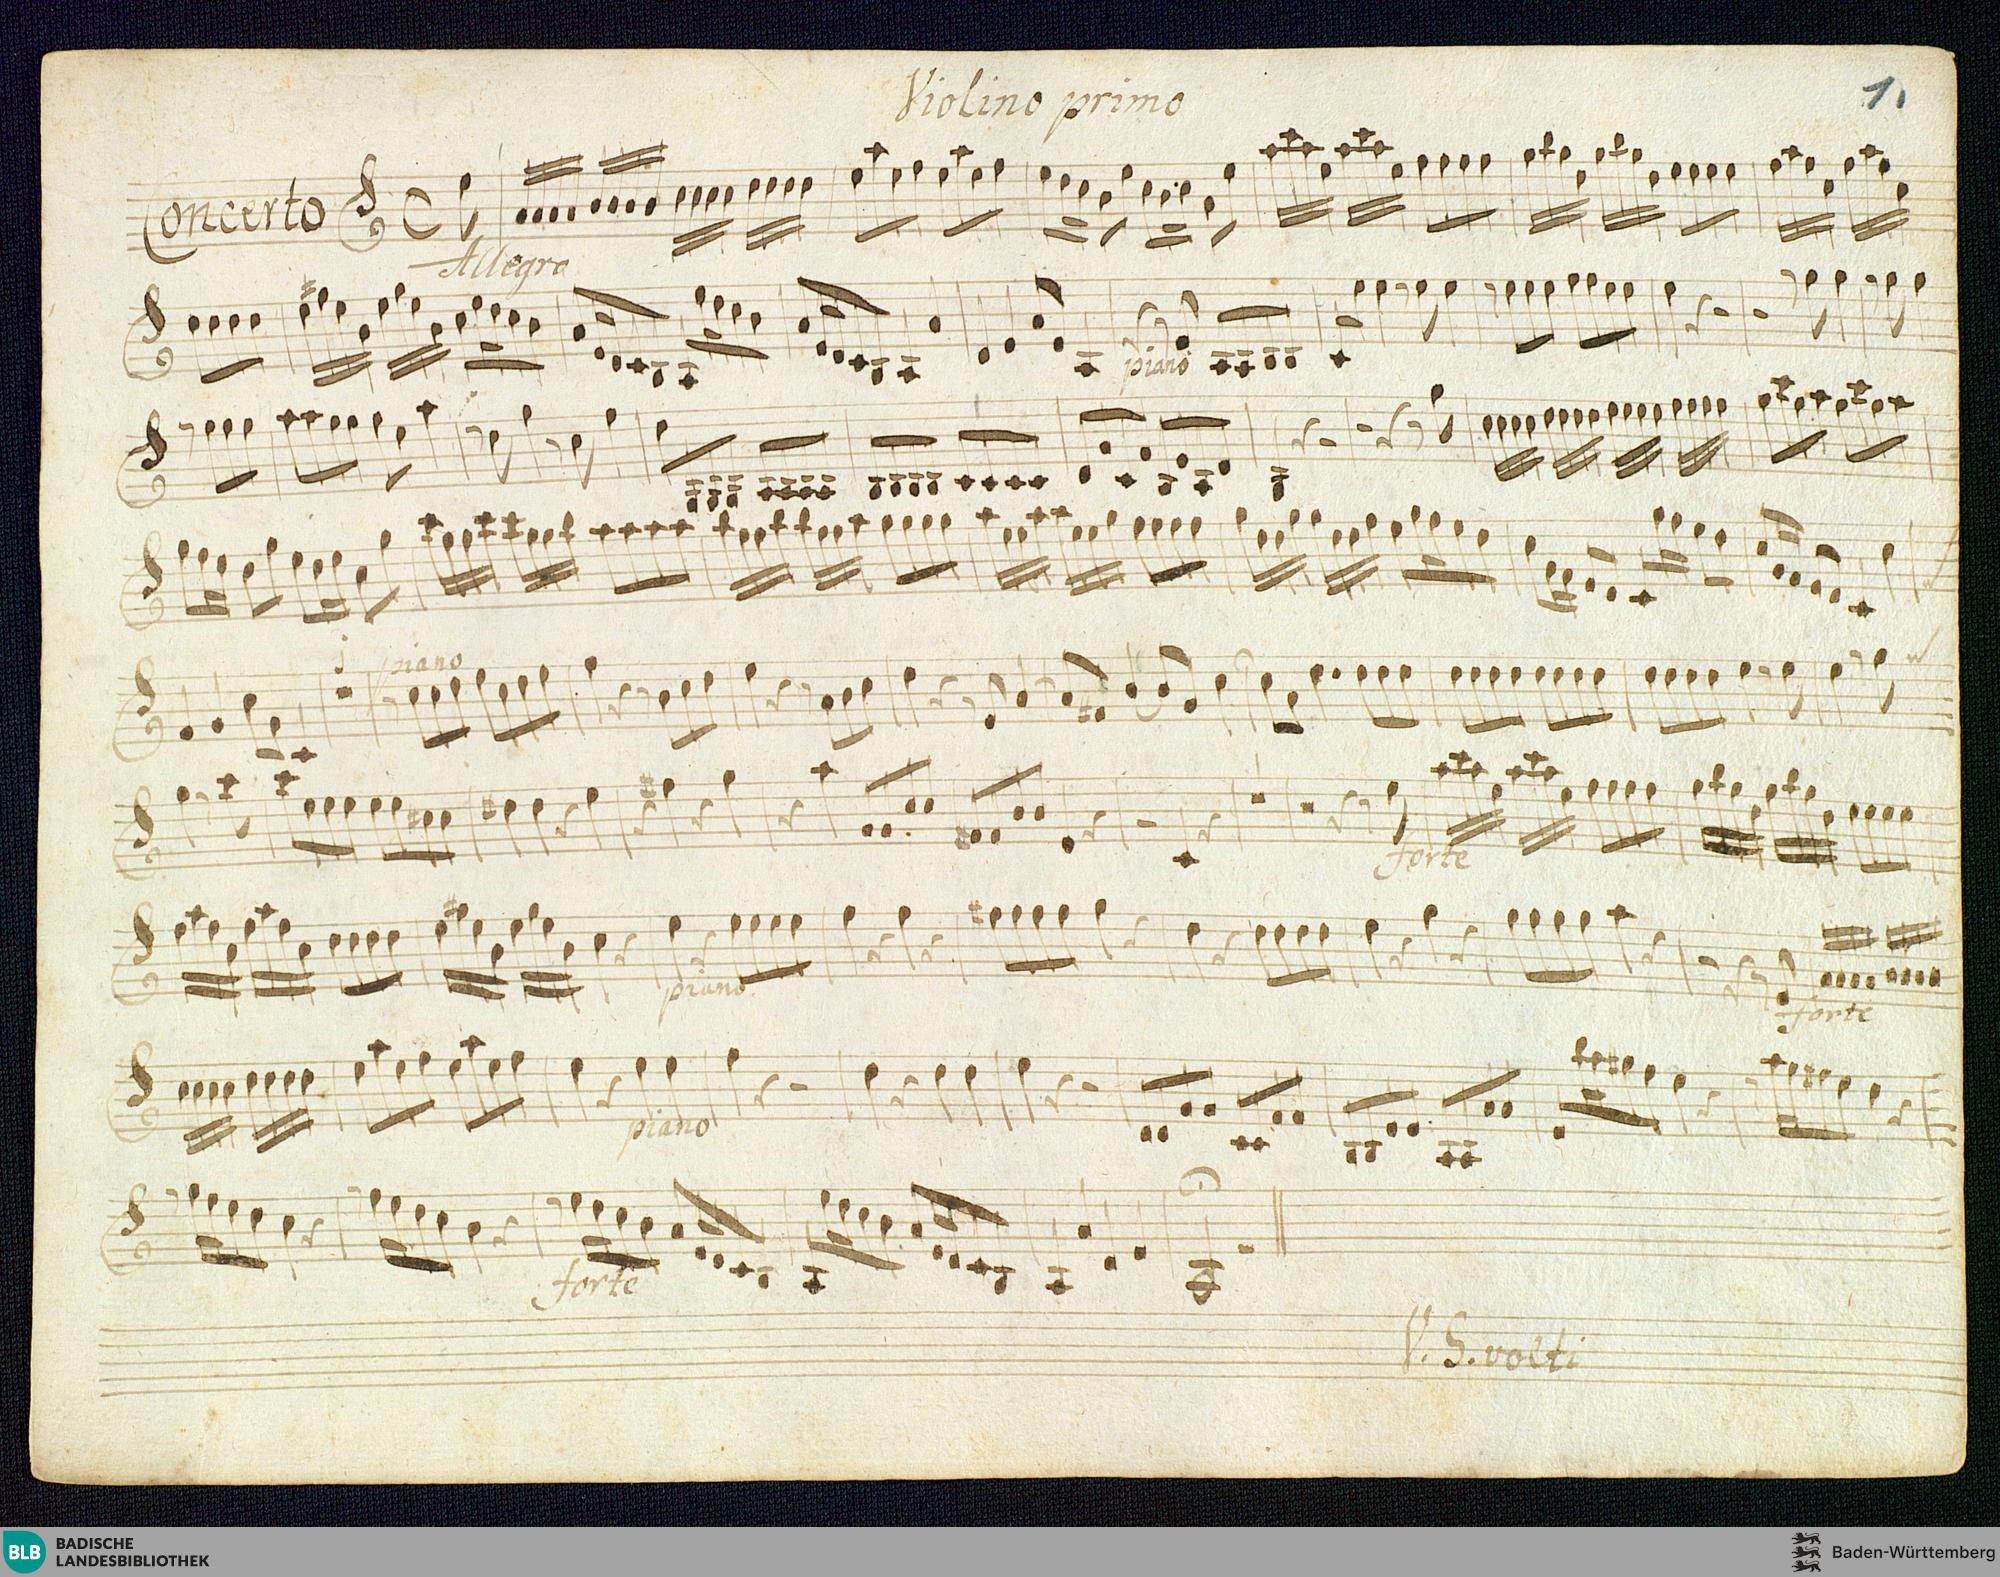 Violino primo
1.
Concerto
Allegro
piano
piano
forte
piano
forte
piano
forte
V. S. volti
BLB BADISCHE
LANDESBIBLIOTHEK
Baden-Württemberg